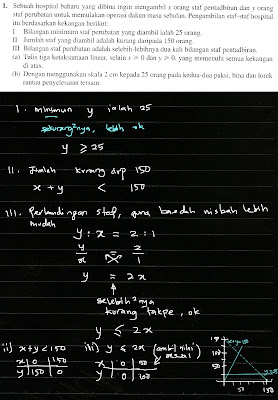 1. Sebuah hospital baharu yang dibina ingin mengambil x orang staf pentadbiran dan y orang
staf perubatan untuk memulakan operasi dalam masa sebulan. Pengambilan staf-staf hospital
itu berdasarkan kekangan berikut:
I Bilangan minimum staf perubatan yang diambil ialah 25 orang.
II Jumlah staf yang diambil adalah kurang daripada 150 orang.
III Bilangan staf perubatan adalah selebih-lebihnya dua kali bilangan staf pentadbiran.
(a) Tulis tiga ketaksamaan linear, selain x ≥ 0 dan y ≥ 0, yang memenuhi semua kekangan
di atas.
(b) Dengan menggunakan skala 2 cm kepada 25 orang pada kedua-dua paksi, bina dan lorek
rantau penyelesaian tersaur.
I. minimum y ialah 25
sekurang²nya, lebih ok
y ≥ 25
II. Jumlah kurang drp 150
x + y < 150
III. Perbandingan staf, guna kaedah nisbah lebih
mudah
y : x = 2 : 1
y/x = 2/1
y = 2x
selebih²nya
kurang takpe, ok
y ≤ 2x
ii) x+y<150 iii) y ≤ 2x (ambil nilai
x | 0 | 150 x | 0 | 50
y | 150 | 0 y | 0 | 100